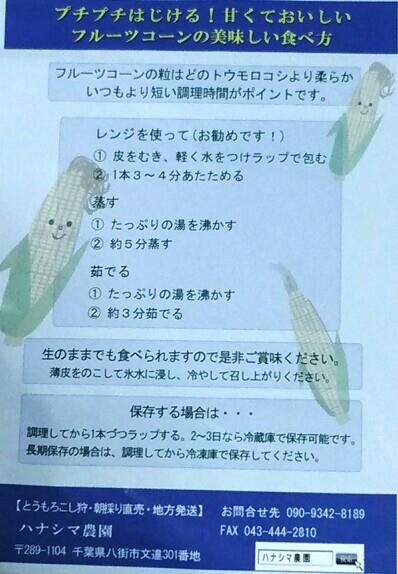 プチプチはじける！甘くておいしい
フルーツコーンの美味しい食べ方
フルーツコーンの粒はどのトウモロコシより柔らか
いつもより短い調理時間がポイントです。
レンジを使って（お勧めです！）
① 皮をむき、軽く水をつけラップで包む
② 1本３～４分あたためる
蒸す
① たっぷりの湯を沸かす
② 約５分蒸す
茹でる
① たっぷりの湯を沸かす
② 約３分茹でる
生のままでも食べられますので是非ご賞味ください。
薄皮をのこして氷水に浸し、冷やして召し上がりください。
保存する場合は・・・
調理してから1本づつラップする。2～3日なら冷蔵庫で保存可能です。
長期保存の場合は、調理してから冷凍庫で保存してください。
【とうもろこし狩・朝採り直売・地方発送】
お問合せ先 090-9342-8189
ハナシマ農園
FAX 043-444-2810
〒289-1104 千葉県八街市文違301番地
ハナシマ農園